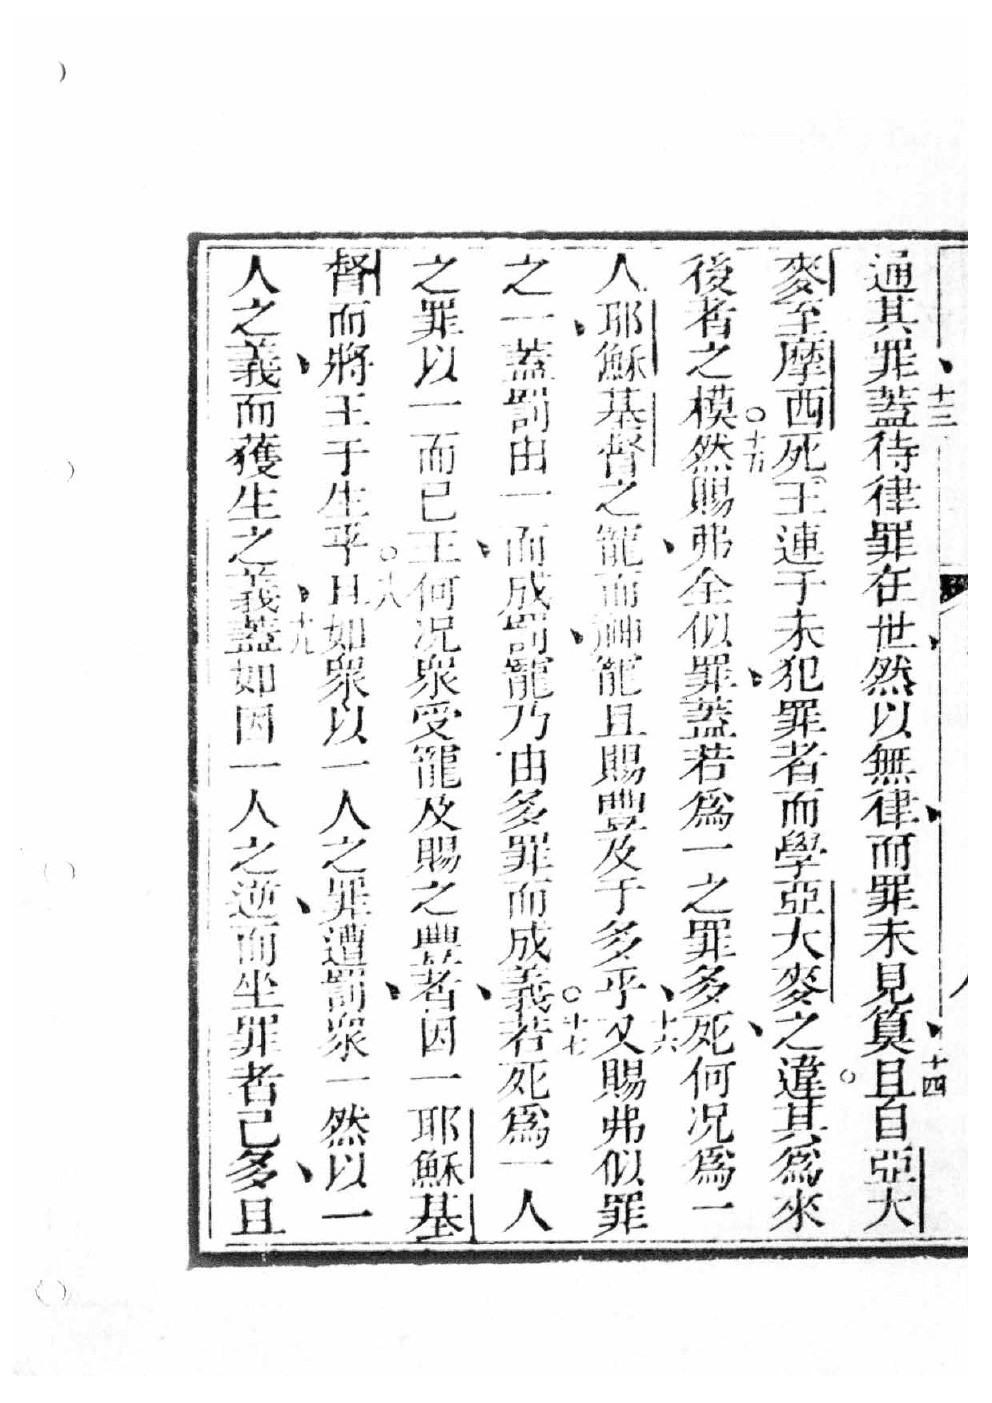 通其罪、十三蓋待律罪在世、然以無律、而罪未見算、十四且自亞大
麥至摩西死王連于未犯罪者而學亞大麥之違。其為來
後者之模○十五然賜弗全似罪、蓋若為一之罪多死、何況為一
人耶穌基督之寵、而神寵且賜豐及于多乎、十六又賜弗似罪
之一、蓋罰由一而成罰、寵乃由多罪而成義○十七若死為一人
之罪以一而已王、何況衆受寵及賜之豐者、因一耶穌基
督而將王于生乎○十八且如衆以一人之罪遭罰、衆一然以一
人之義、而獲生之義、十九蓋如因一人之逆、而坐罪者已多、且